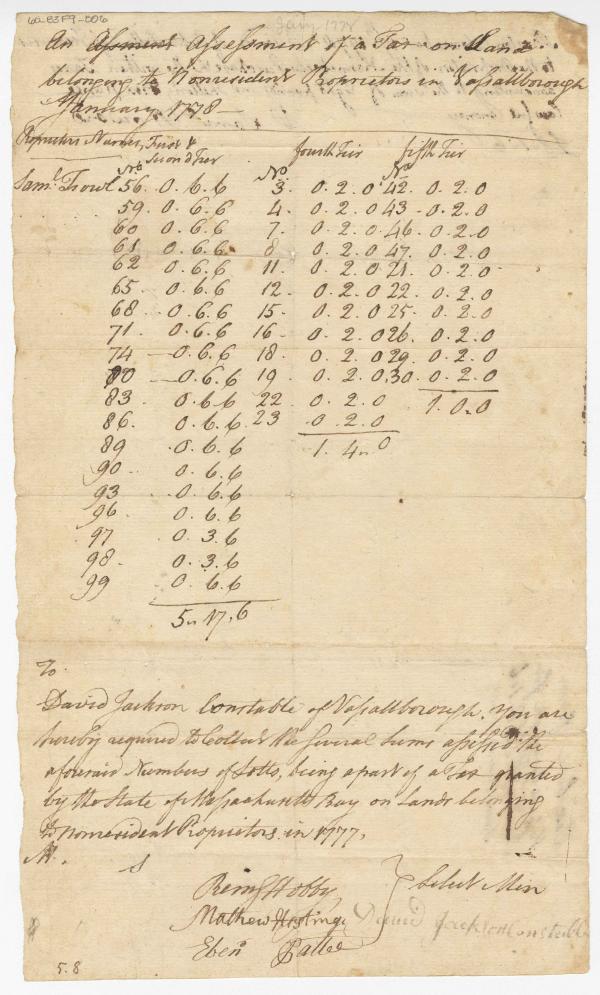 6a-83F9-006
Jan'y 1778
An Assment Assessment of a Tax on Land
belonging to Nonresident Proprietors in Vassallborough
January 1778—
Propriters Names, First & fourth Tier fifth Tier
Second Tier
No. No. No.
Saml. 56. 0. 6. 6 3. 0. 2. 0 42. 0. 2. 0
59. 0. 6. 6 4. 0. 2. 0 43. 0. 2. 0
60 0. 6. 6 7. 0. 2. 0 46. 0. 2. 0
61 0. 6. 6 8 0. 2. 0 47. 0. 2. 0
62 0. 6. 6 11. 0. 2. 0 21. 0. 2. 0
65. 0. 6. 6 12. 0. 2. 0 22. 0. 2. 0
68. 0. 6. 6 15. 0. 2. 0 25. 0. 2. 0
71. 0. 6. 6 16. 0. 2. 0 26. 0. 2. 0
74 —0. 6. 6 18. 0. 2. 0 29. 0. 2. 0
80 —0. 6. 6 19. 0. 2. 0 30. 0. 2. 0
83. 0. 6. 6 22 0. 2. 0 1. 0. 0
86. 0. 6. 6 23 0. 2. 0
89 0. 6. 6 1. 4. 0
90. 0. 6. 6
93 0. 6. 6
96. 0. 6. 6
97 0. 3. 6
98. 0. 3. 6
99 0. 6. 6
5. 17. 6
To
David Jackson Constable of Vassallborough. You are
hereby required to Collect the several sums assessed the
aforesaid Numbers of Lotts, being a part of a Tax granted
by the State of Massachusetts Bay on Lands belonging
to nonresident Propriotors in 1777.
Remg Hobby
Mathew Hastings } Select Min
David Jackson Constable
Eben Pattee
5.8